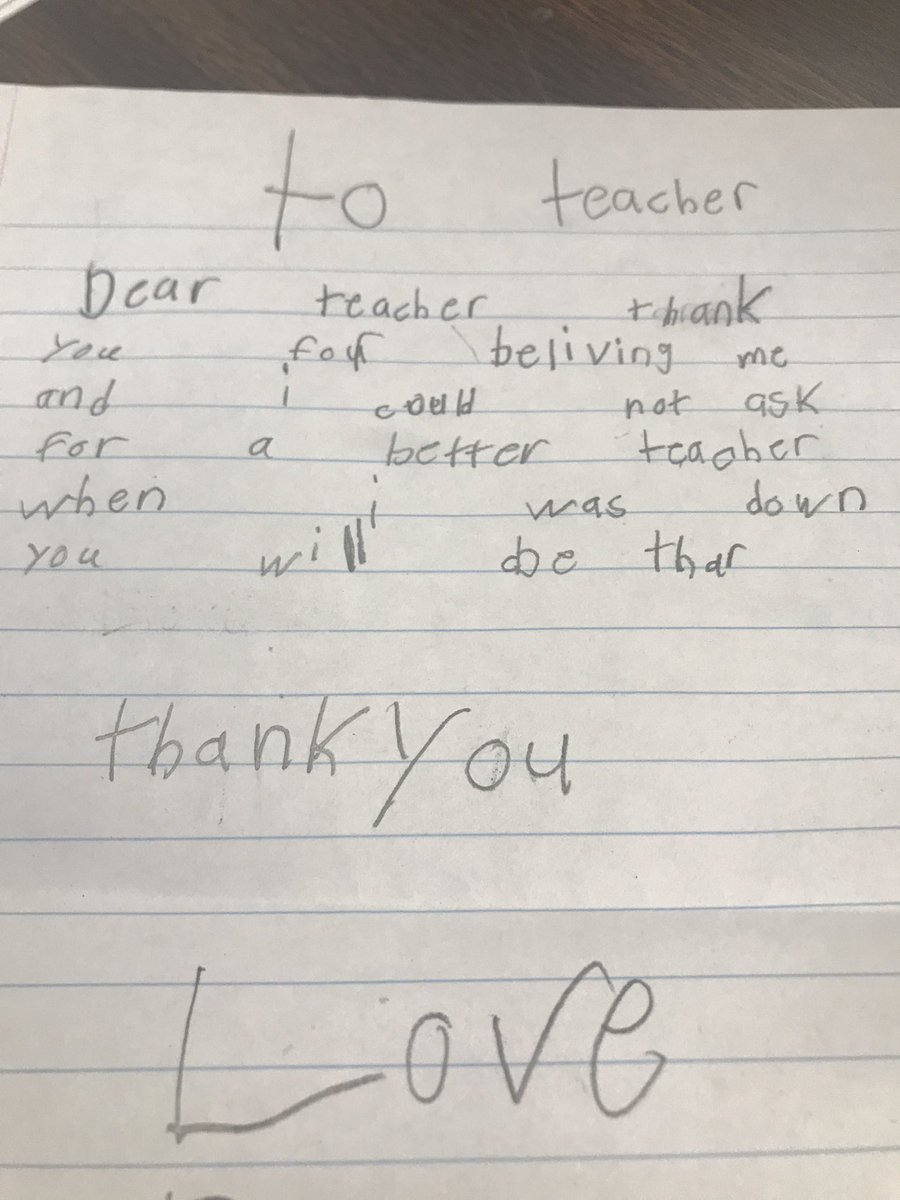 to teacher
Dear teacher thank
you for beliving me
and i could not ask
for a better teacher
when i was down
you will be thar
thank you
Love